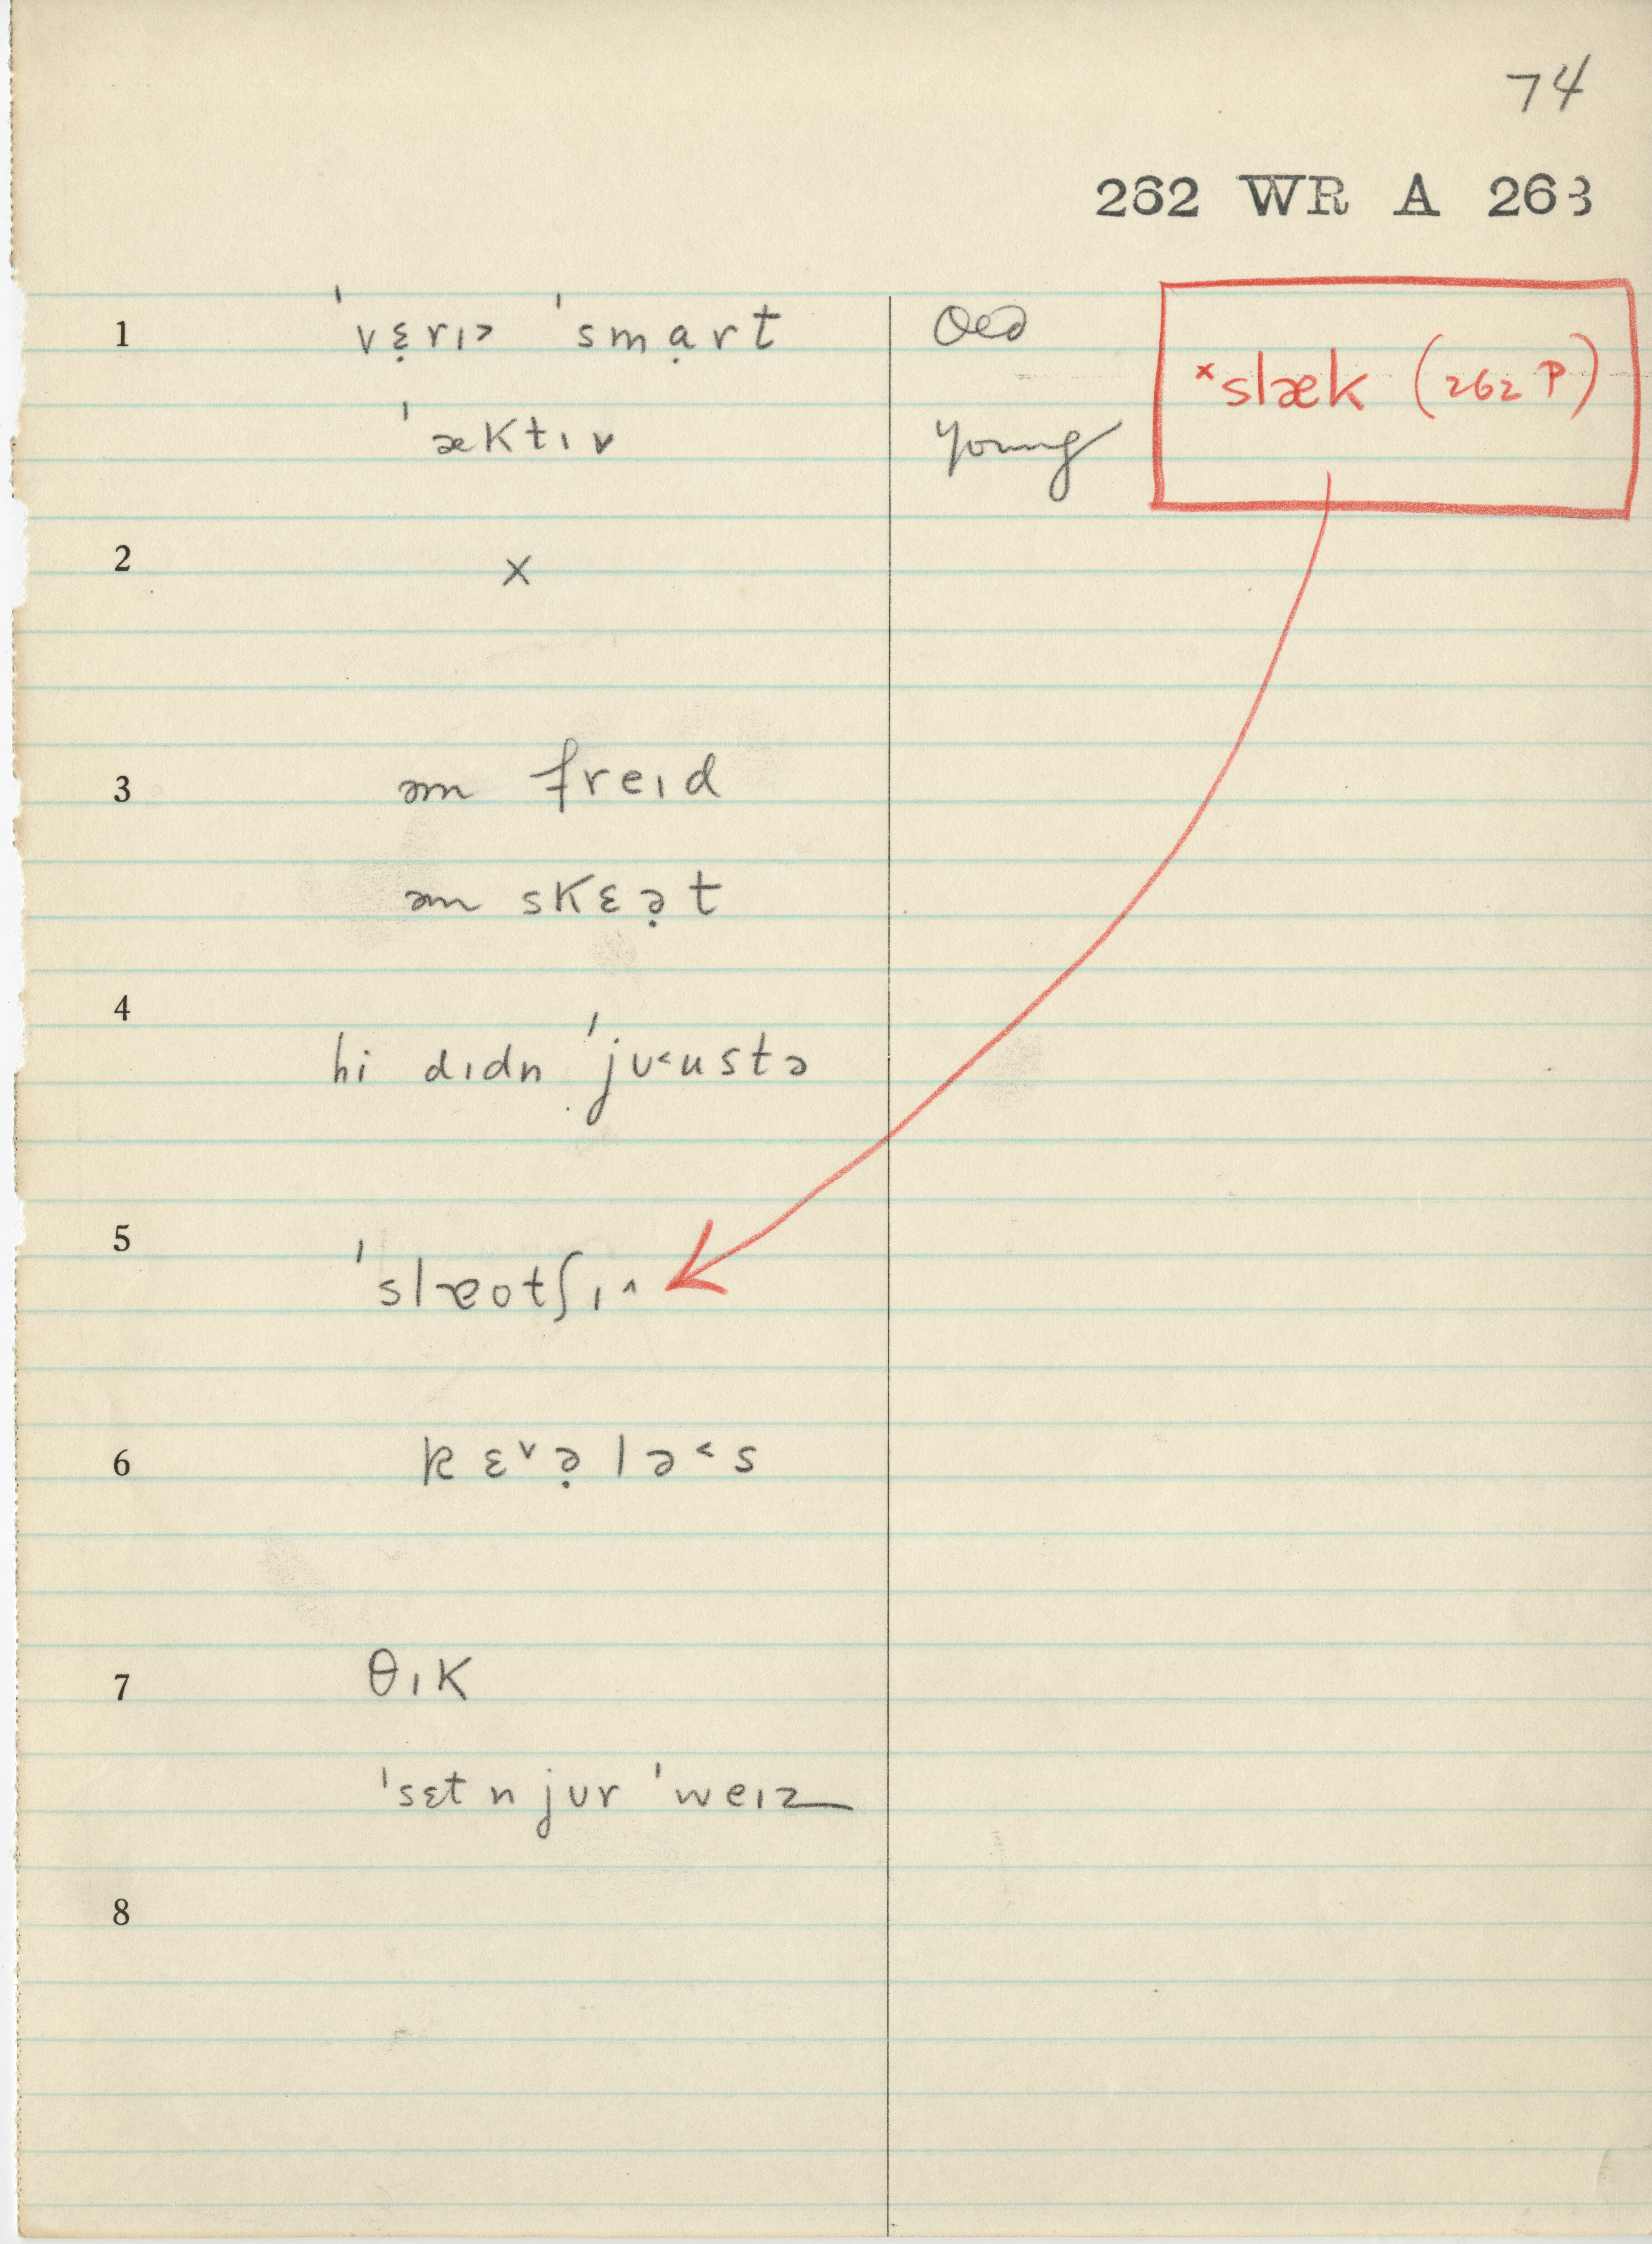 74
262 WR A 263
1 ˈvɛ̣rɪ˃ ˈsmạrt Old
ˈæktɪv young
ˣslæk (262 P)
2 ×
3 əm freɪd
əm skɛə̣t
4 hi dɪdn ˈjʊ˂ustə
5 ˈslæotʃɪ˄
6 kɛ˅ə̣lə˂s
7 θɪk
ˈsɛt n jʊr ˈweɪz
8